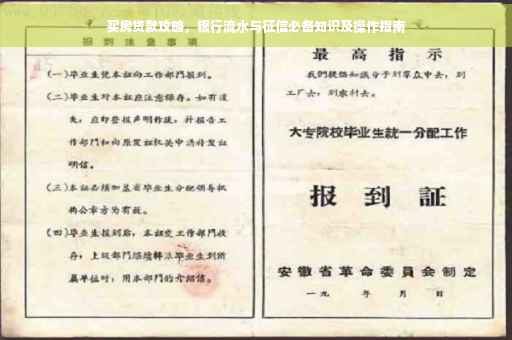 买房贷款攻略，银行流水与征信必备知识及操作指南
报到注意事项
(一)毕业生凭本证向工作部门报到。
(二)毕业生对本证应注意保存。如有遗
失，应即登报声明作废，并报告工
作部门和向原发证机关申请补发证
明信。
(三)本证必须加盖省毕业生分配领导机
构公章方为有效。
(四)毕业生报到后，本证交工作部门收
存；上级部门继续转派毕业生到所
属单位时，用本部门的介绍信。
最高指示
我们提倡知识分子到群众中去，到
工厂去，到农村去。
大专院校毕业生统一分配工作
报到证
安徽省革命委员会制定
一九 年 月 日